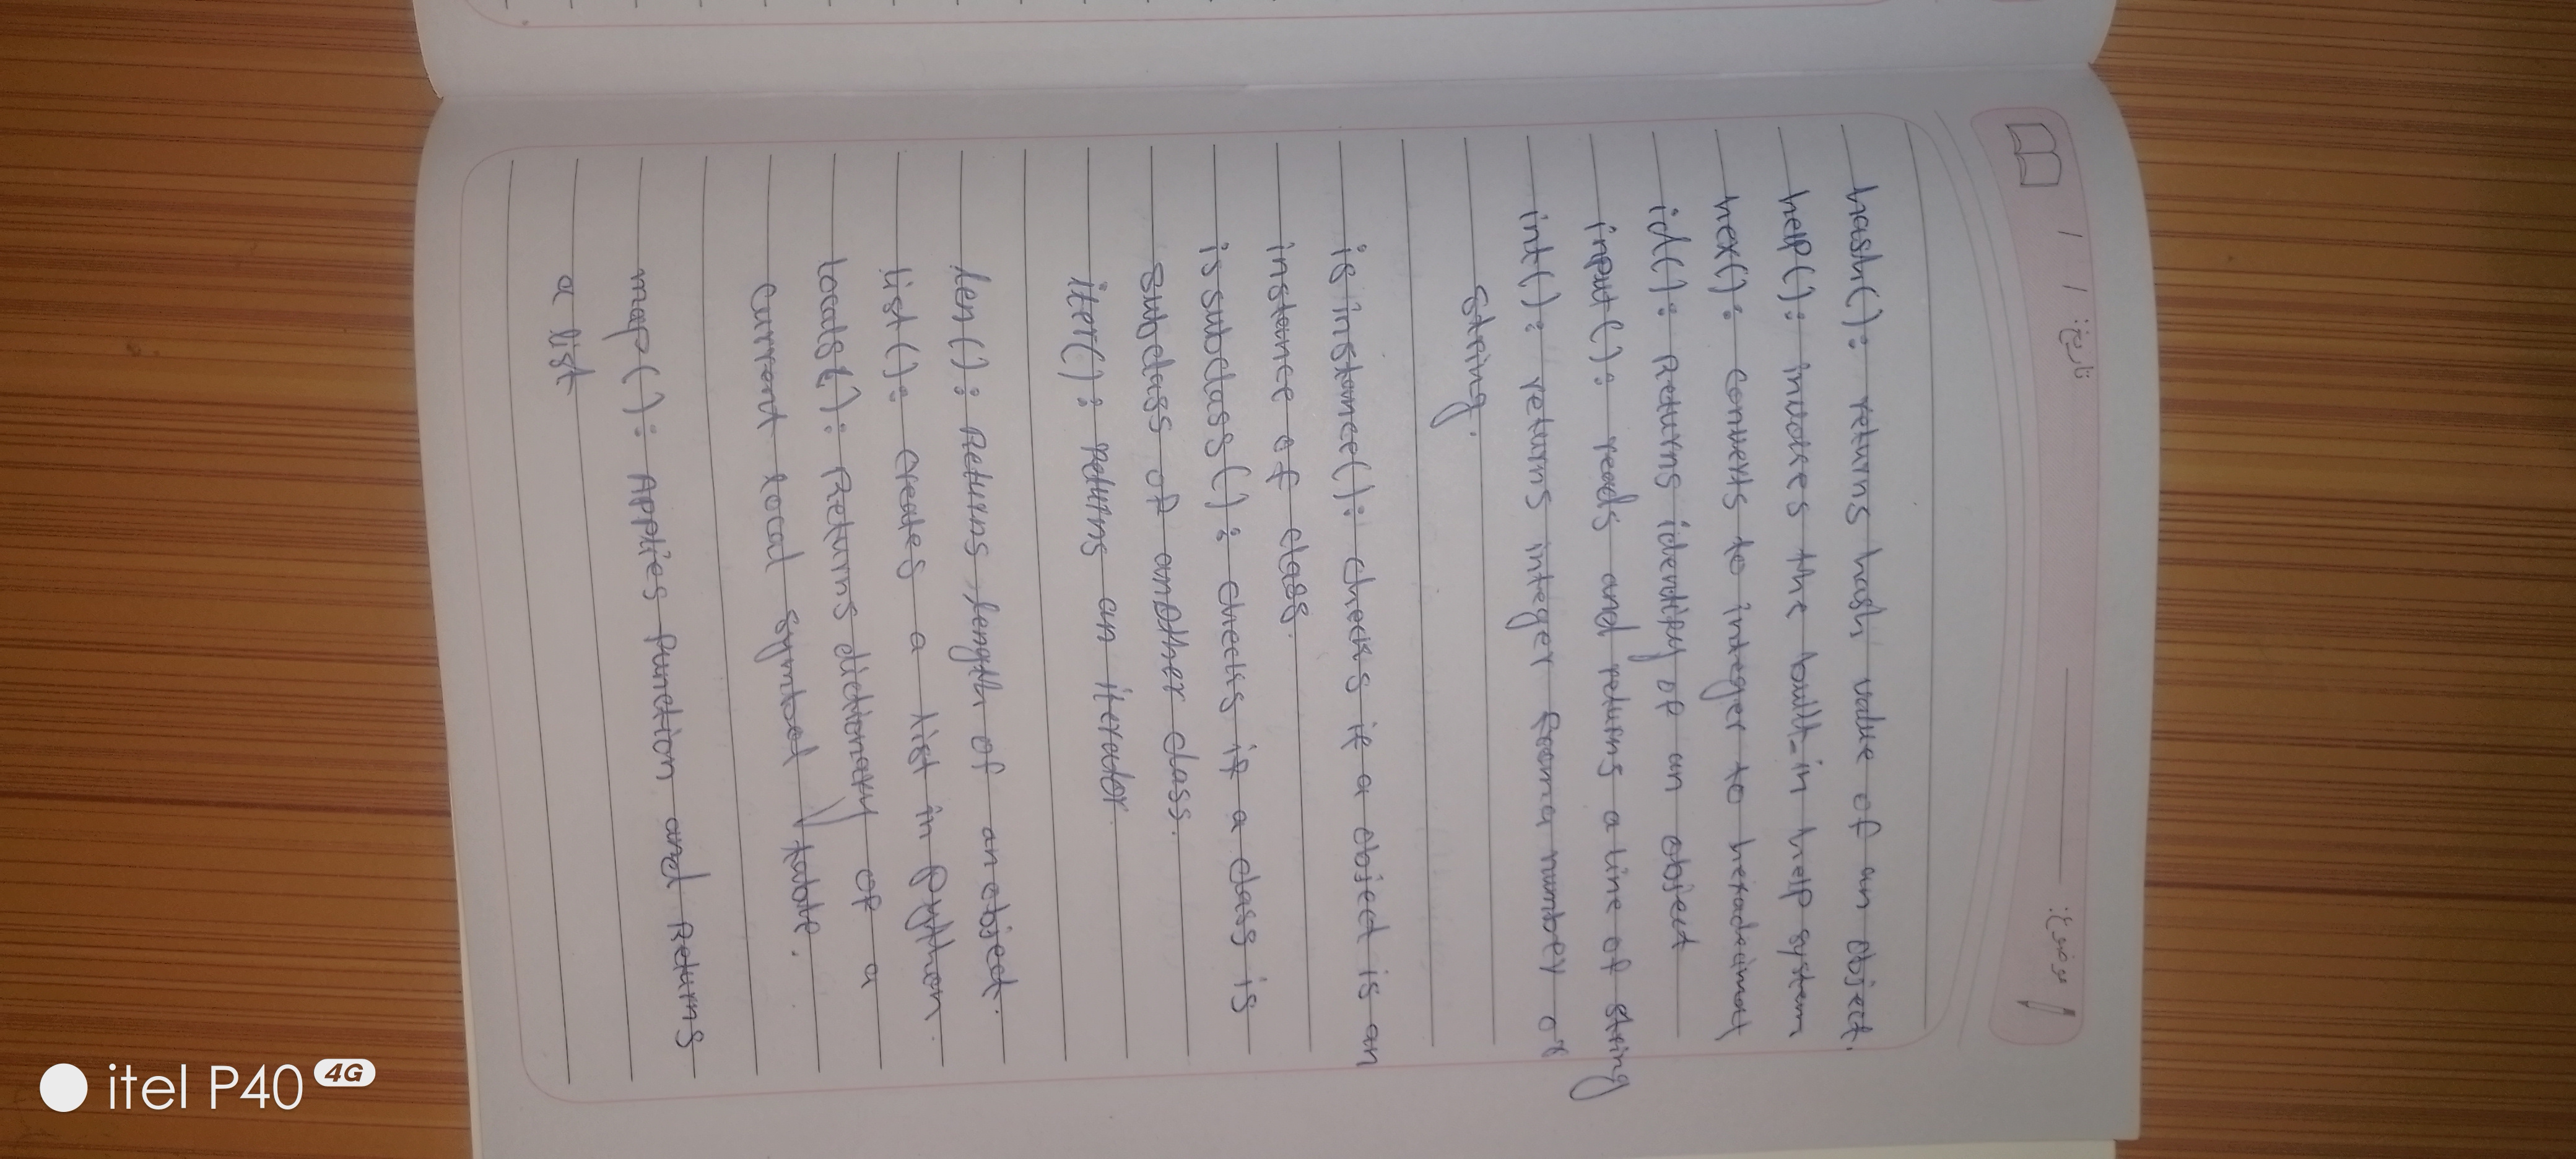 تاریخ: / /
موضوع:
hash(): returns hash value of an object.
help(): invokes the built-in help system
hex(): converts to integer to hexadecimal
id(): Returns identity of an object
input(): reads and returns a line of string
int(): returns integer from a number or
string.
isinstance(): checks if a object is an
instance of class.
issubclass(): checks if a class is
subclass of another class.
iter(): returns an iterator.
len(): Returns length of an object.
list(): creates a list in Python.
locals(): Returns dictionary of a
current local symbol table.
map(): Applies function and Returns
a list
itel P40 4G